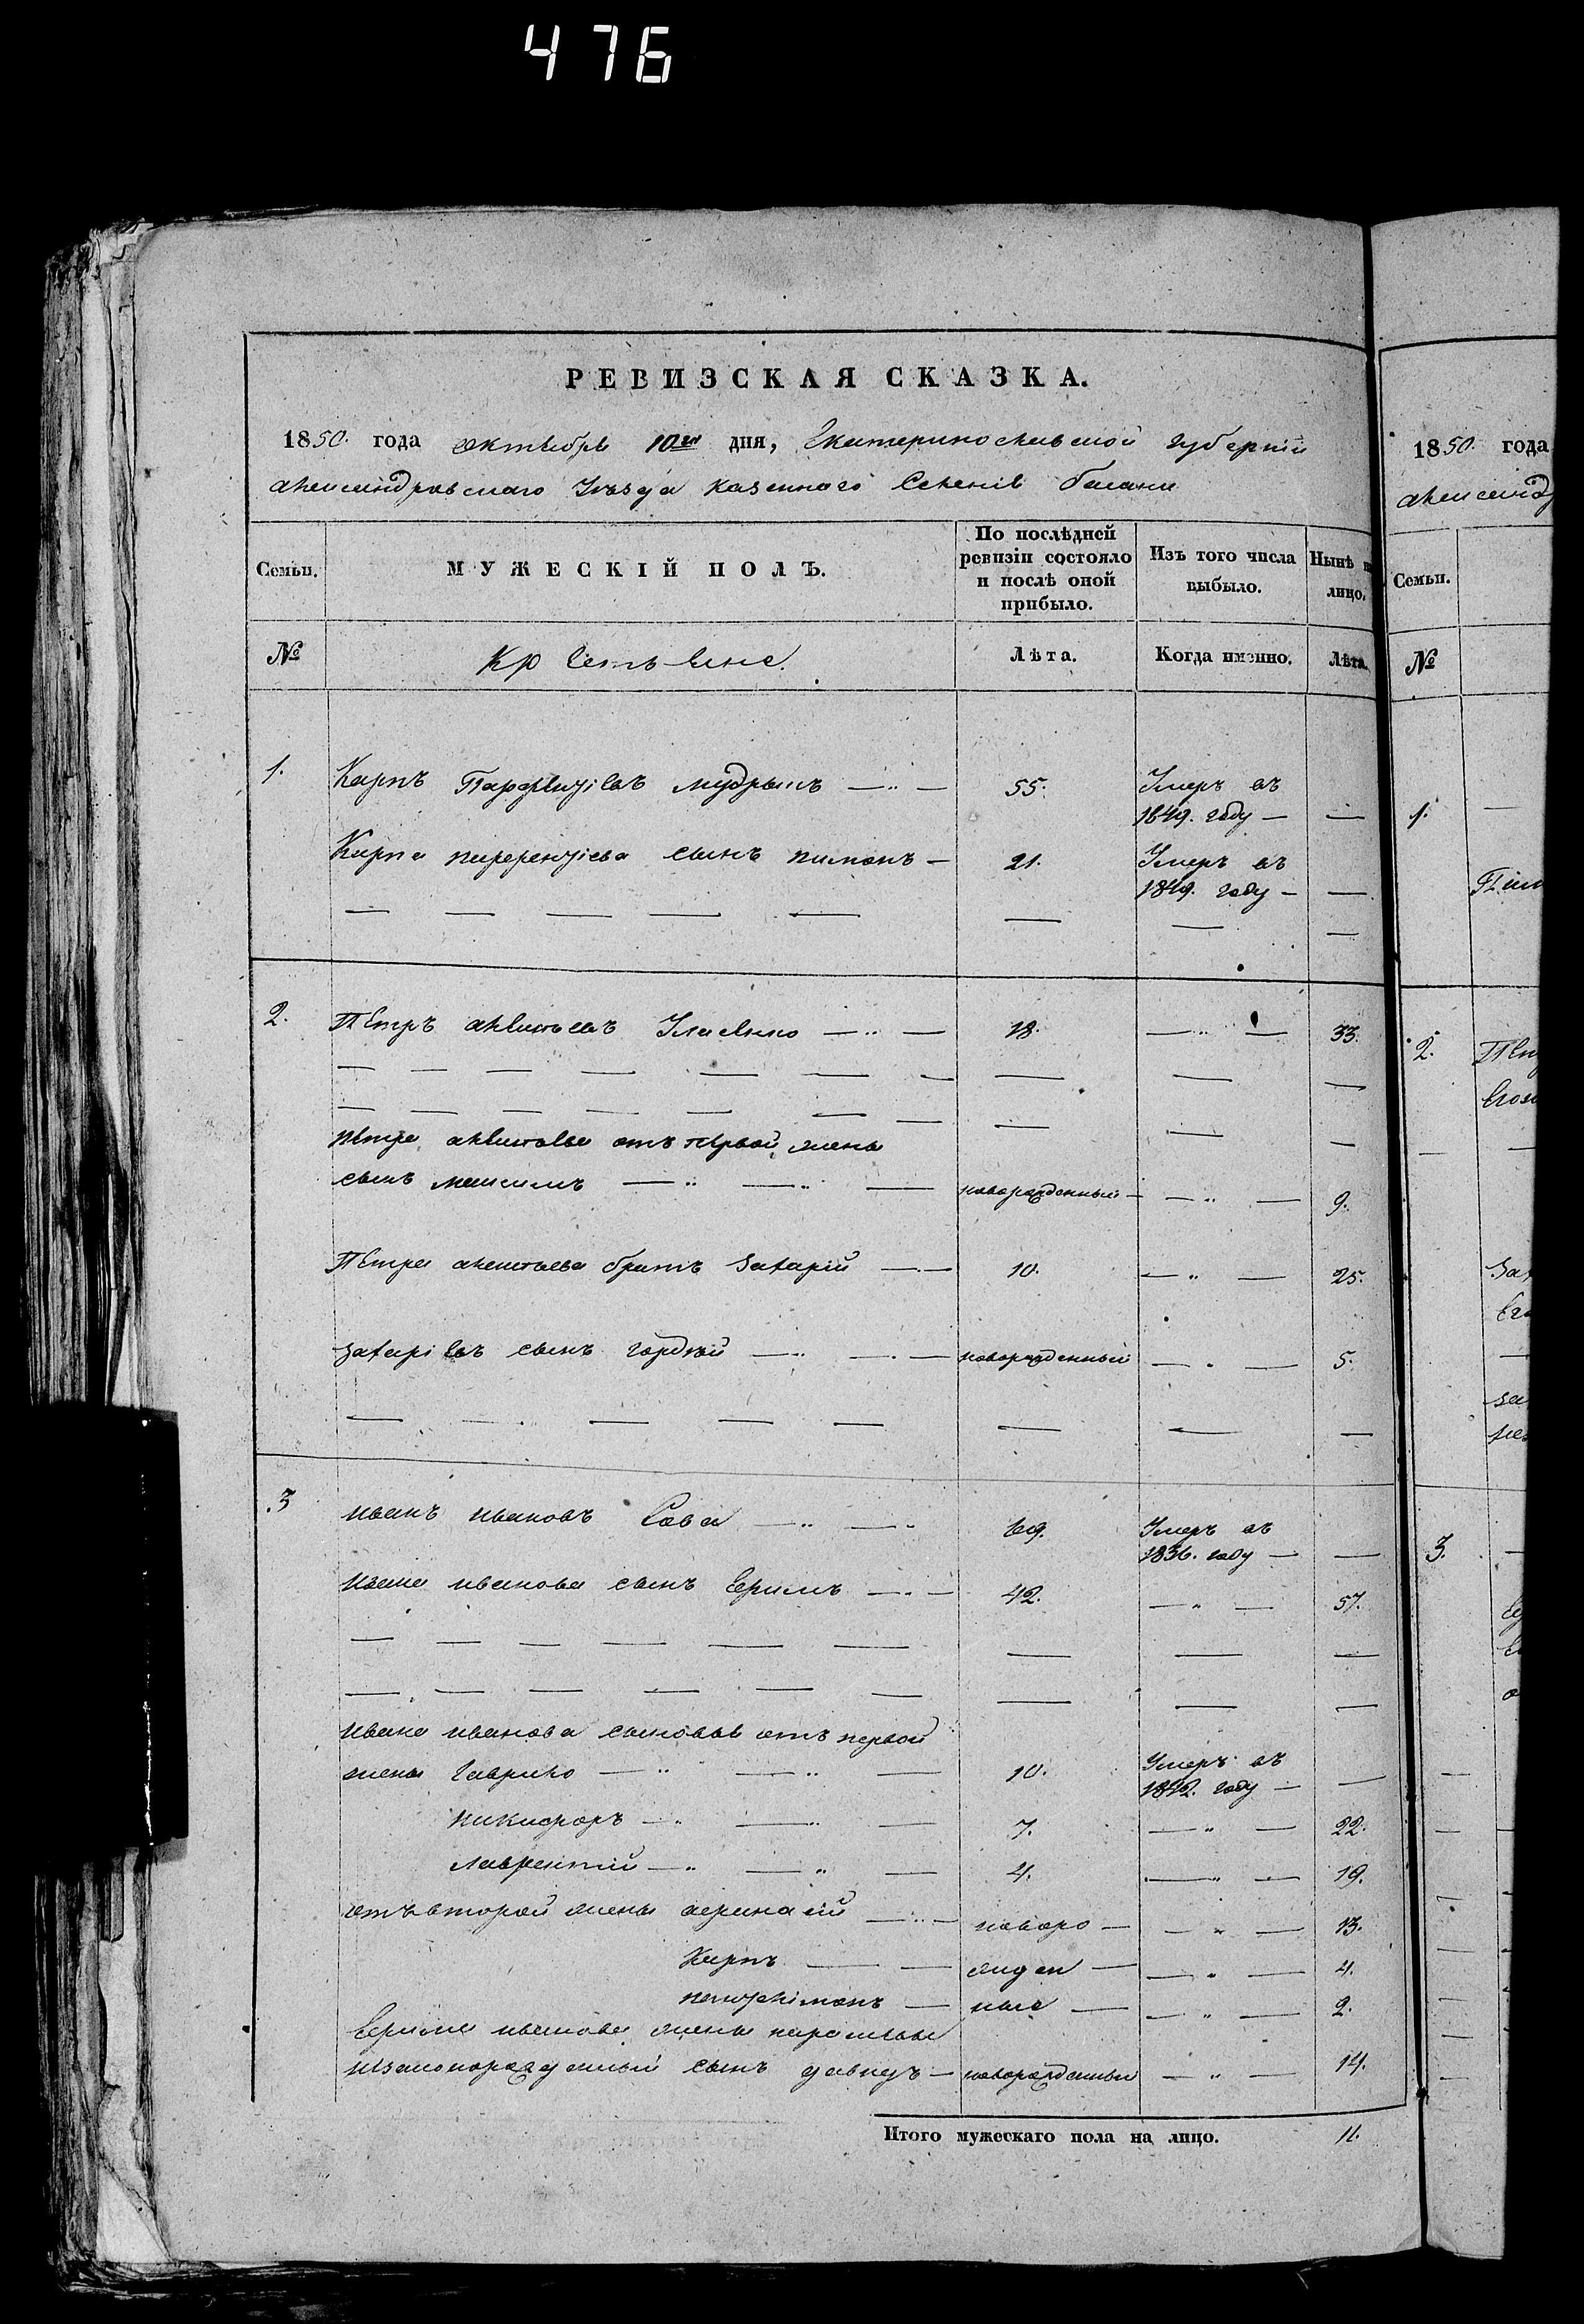 476
РЕВИЗСКАЯ СКАЗКА.
1850. года октября 10го дня, Екатеринославской губернии
александровскаго Уѣзда казеннаго Селенія
Семьи.
МУЖЕСКІЙ ПОЛЪ.
По послѣдней
ревизіи состояло
и послѣ оной
прибыло.
Изъ того числа
выбыло.
Нынѣ н
лицо.
№
Крестьяне.
Лѣта.
Когда именно.
Лѣта.
1. Карпъ мудрыхъ 55. Умеръ въ
1849. году —
Карпа сынъ пимонъ — 21. Умеръ въ
1849. году —
2. Петръ 18. 33.
Петра отъ первой жены
сынъ максимъ новорожденный 9.
Петра братъ Захарій 10. 25.
Захаріевъ сынъ гордѣй новорожденный 5.
3 иванъ ивановъ Сова 69. Умеръ въ
1836. году —
ивана иванова сынъ Ефимъ 42. 57.
ивана иванова сыновья отъ первой
жены Гаврило 10. Умеръ въ
1842. году —
никифоръ 7. 22.
лаврентій 4. 19.
отъ второй жены новоро — 13.
Карпъ жден — 4.
ные — 2.
Ефима иванова жены
сынъ давидъ — новорожденный 14.
Итого мужескаго пола на лицо. 11.
1850. года
александ
Семьи.
№
1.
Пим
2. Пет
Зах
3.